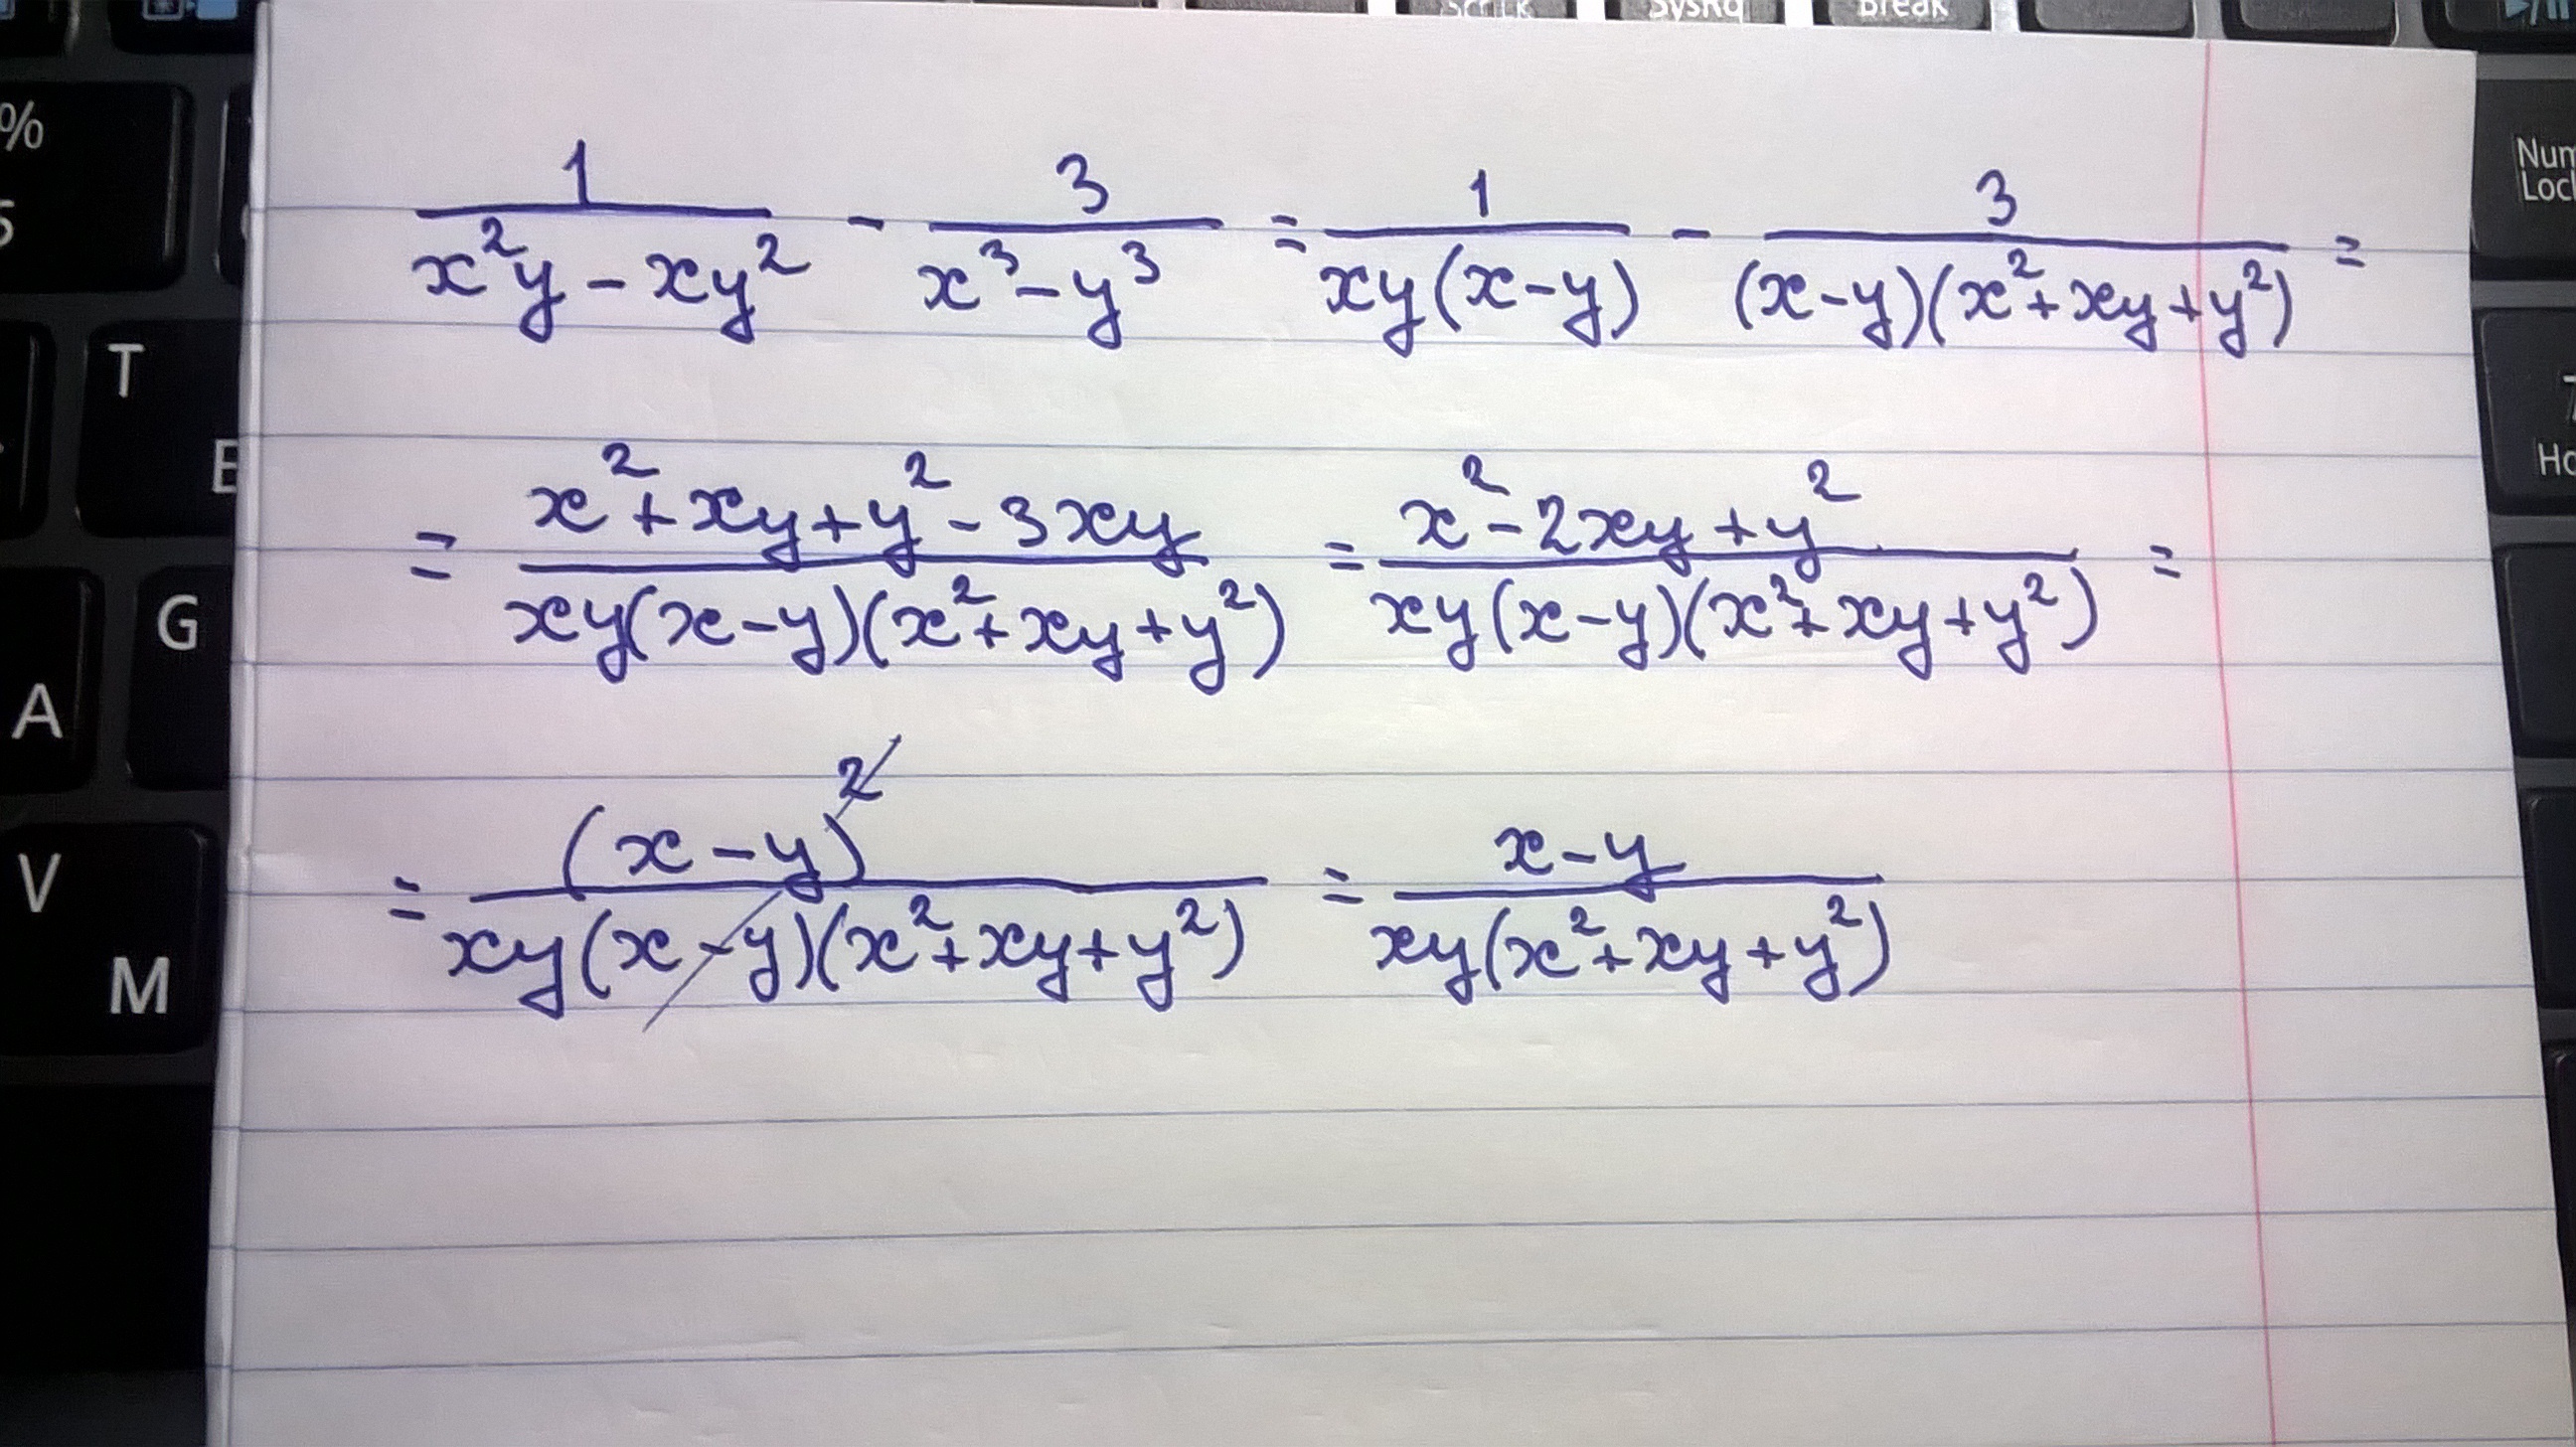 ScrLk SysRq Break
% 5 Num Lock
1/(x²y - xy²) - 3/(x³ - y³) = 1/(xy(x-y)) - 3/((x-y)(x²+xy+y²)) =
T
E
= (x²+xy+y²-3xy)/(xy(x-y)(x²+xy+y²)) = (x²-2xy+y²)/(xy(x-y)(x²+xy+y²)) =
G
A
= (x-y)²/(xy(x-y)(x²+xy+y²)) = (x-y)/(xy(x²+xy+y²))
V
M